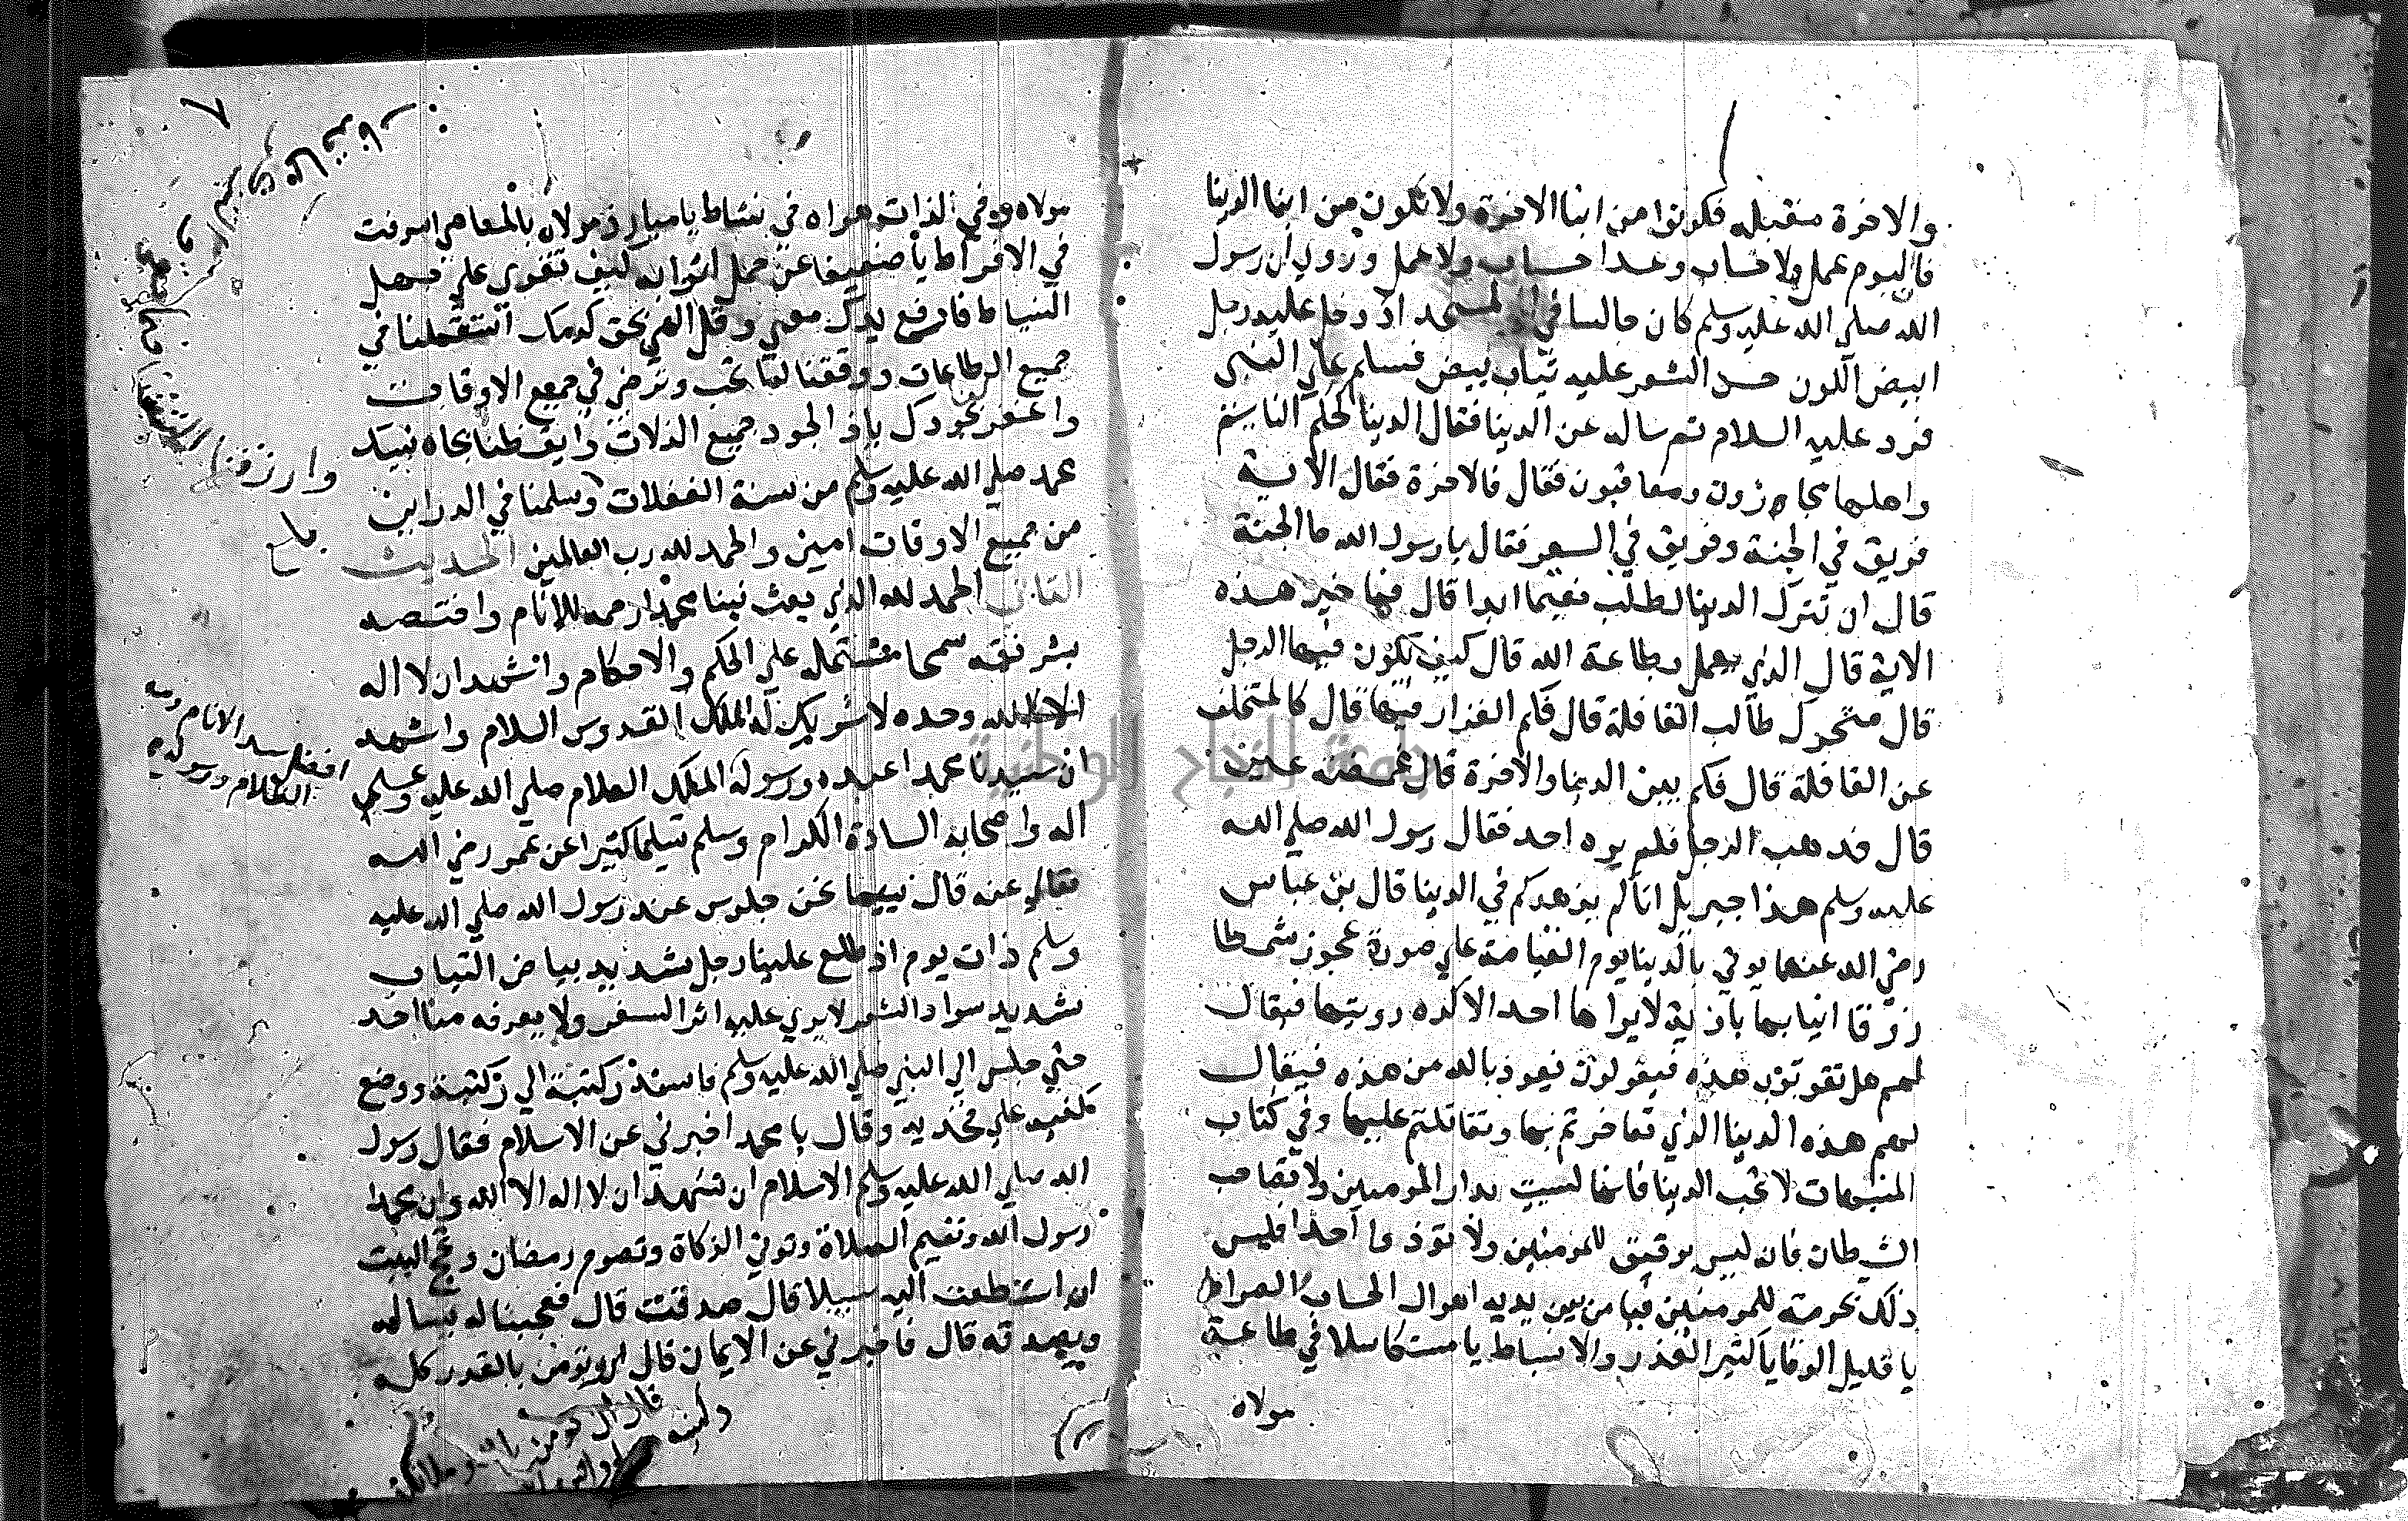 والاخرة مقبله فكونوا من ابنا الاخرة ولا تكون من ابنا الدينا
فاليوم عمل ولا حساب وغدا حساب ولا عمل وروي ان رسول
الله صلي الله عليه وسلم كان جالسا في المسجد اذ دخل عليه رجل
ابيض اللون حسن الشعر عليه ثياب بيض فسلم علي النبي
فرد عليه السلام ثم ساله عن الدينا فقال الدينا كحلم النايم
واهلها مجازون ومعاقبون فقال فالاخرة فقال الابدية
فريق في الجنة وفريق في السعير فقال يا رسول الله ما الجنة
قال ان تترك الدينا لطلب نعيمها ابدا قال فما خير هذه
الاية قال الذي يعمل بطاعة الله قال كيف يكون فيها الرجل
قال متحول طالب القافلة قال فكم القرار فيها قال كالمتخلف
عن القافلة قال فكم بين الدينا والاخرة قال غمضة عين
قال فذهب الرجل فلم يره احد فقال رسول الله صلي الله
عليه وسلم هذا جبريل اتاكم يزهدكم في الدينا قال بن عباس
رضي الله عنهما يوتي بالدينا يوم القيامة علي صورة عجوز شمطا
زرقا انيابها بادية لا يراها احد الا كره رويتها فيقال
لهم هل تعرفون هذه فيقولون نعوذ بالله من هذه فيقال
لهم هذه الدينا الذي تفاخرتم بها وتقاتلتم عليها وفي كتاب
المنبهات لا تحب الدينا فانها ليست بدار المومنين ولا تصاحب
الشيطان فان ليس برفيق للمومنين ولا توذ ما احدا فليس
ذلك بحرمة للمومنين فيا من بين يديه اهوال الحساب والصراط
يا قليل الوفا يا كثير الغدر والانبساط يا متكاسلا في طاعة
مولاه
مولاه وفي لذات هواه في نشاط يا مبارز مولاه بالمعاصي اسرفت
في الافراط يا ضعيفا عن حمل اثوابه كيف تقوي علي حمل
السياط فارفع يدك معي وقل الهي بحق كرمك استعملنا في
جميع الطاعات ووفقنا لما تحب وترضي في جميع الاوقات
واغفر بجودك ياذ الجود جميع الذلات وايقظنا بجاه نبيك
محمد صلي الله عليه وسلم من سنة الغفلات وسلمنا في الدارين
من جميع الاوقات امين والحمد لله رب العالمين الحديث
الثاني الحمد لله الذي بعث نبينا محمدا رحمه للانام واختصه
بشرفته سمحا مشتملة علي الحكم والاحكام واشهد ان لا اله
الا الله وحده لا شريك له الملك القدوس السلام واشهد
ان سيدنا محمدا عبده ورسوله الملك العلام صلي الله عليه وعلي
اله واصحابه السادة الكرام وسلم تسليما كثيرا عن عمر رضي الله
تعالي عنه قال بينما نحن جلوس عند رسول الله صلي الله عليه
وسلم ذات يوم اذ طلع علينا رجل شديد بياض الثياب
شديد سواد الشعر لا يري عليه اثر السفر ولا يعرفه منا احد
حتي جلس الي النبي صلي الله عليه وسلم فاسند ركبته الي ركبته ووضع
كفيه علي فخذيه وقال يا محمد اخبرني عن الاسلام فقال رسول
الله صلي الله عليه وسلم الاسلام ان تشهد ان لا اله الا الله وان محمدا
رسول الله وتقيم الصلاة وتوتي الزكاة وتصوم رمضان وتحج البيت
ان استطعت اليه سبيلا قال صدقت قال فعجبنا له يساله
ويصدقه قال فاخبرني عن الايمان قال ان تومن بالقدر كله
وارزقنا
افضل سيد الانام
جامعة النجاح الوطنية